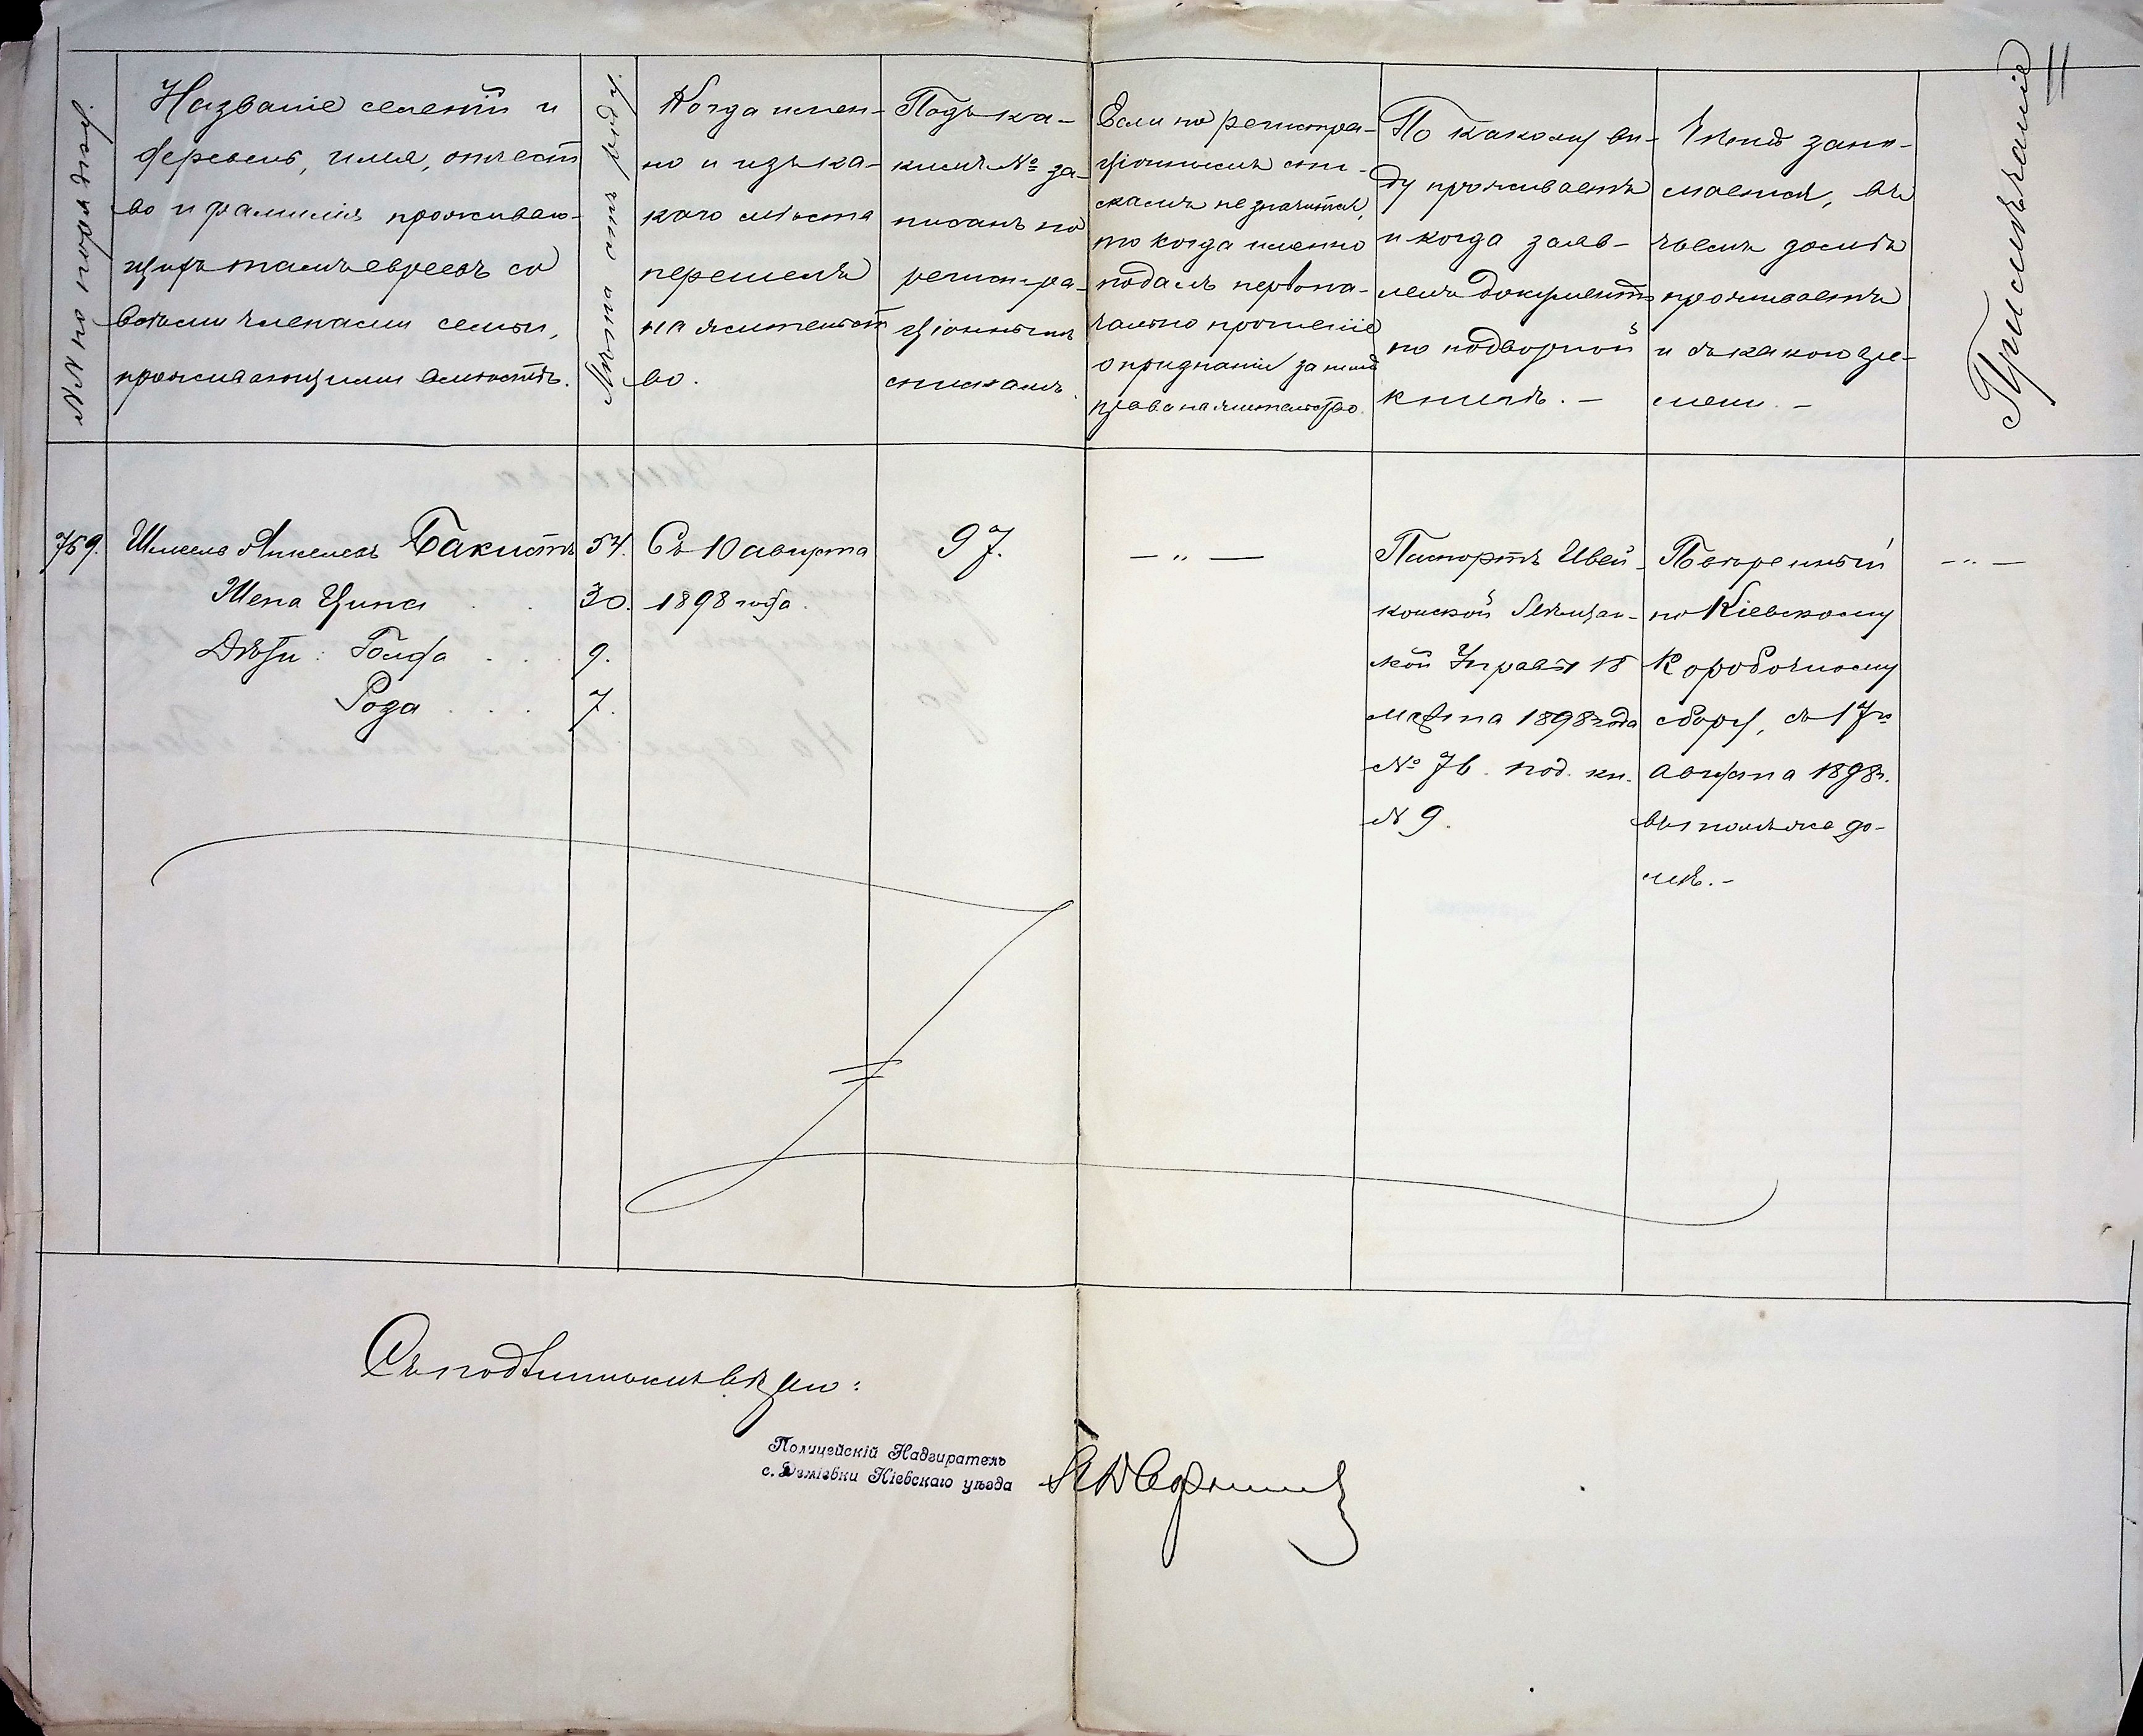 11
№№ по порядку.
Названіе селеній и
деревень, имя, отчест
во и фамилія проживаю-
щихъ тамъ евреевъ со
всѣми членами семьи,
проживающими вмѣстѣ.
Лѣта отъ роду.
Когда имен-
но и изъ ка-
кого мѣста
перешелъ
на жительст
во.
Подъ ка-
кимъ № за-
писанъ по
регистра-
ціоннымъ
спискамъ.
Если по регистра-
ціоннымъ спи-
скамъ не значится,
то когда именно
подалъ первона-
чально прошеніе
о признаніи за нимъ
права на жительство.
По какому ви-
ду проживаетъ
и когда заяв-
ленъ документъ
по подворной
книгѣ. —
Чѣмъ зани-
мается, въ
чьемъ домѣ
проживаетъ
и съ какого вре-
мени. —
Примѣчаніе
759.
Шмель Анкелевъ Бакистъ 54.
Жена Ципа . . 30.
Дѣти: Голда . . . 9.
Рода . . . 7.
Съ 10 августа
1898 года.
97.
— „ —
Паспортъ
Управы 18
1898 года
№ 76. под. кн.
№ 9.
Повѣренный
по Кіевскому
Коробочному
сбору, съ 17го
августа 1898г.
въ томъ же до-
мѣ. —
— „ —
Съ подлиннымъ вѣрно:
Полицейскій Надзиратель
с. Деміевки Кіевскаго уѣзда